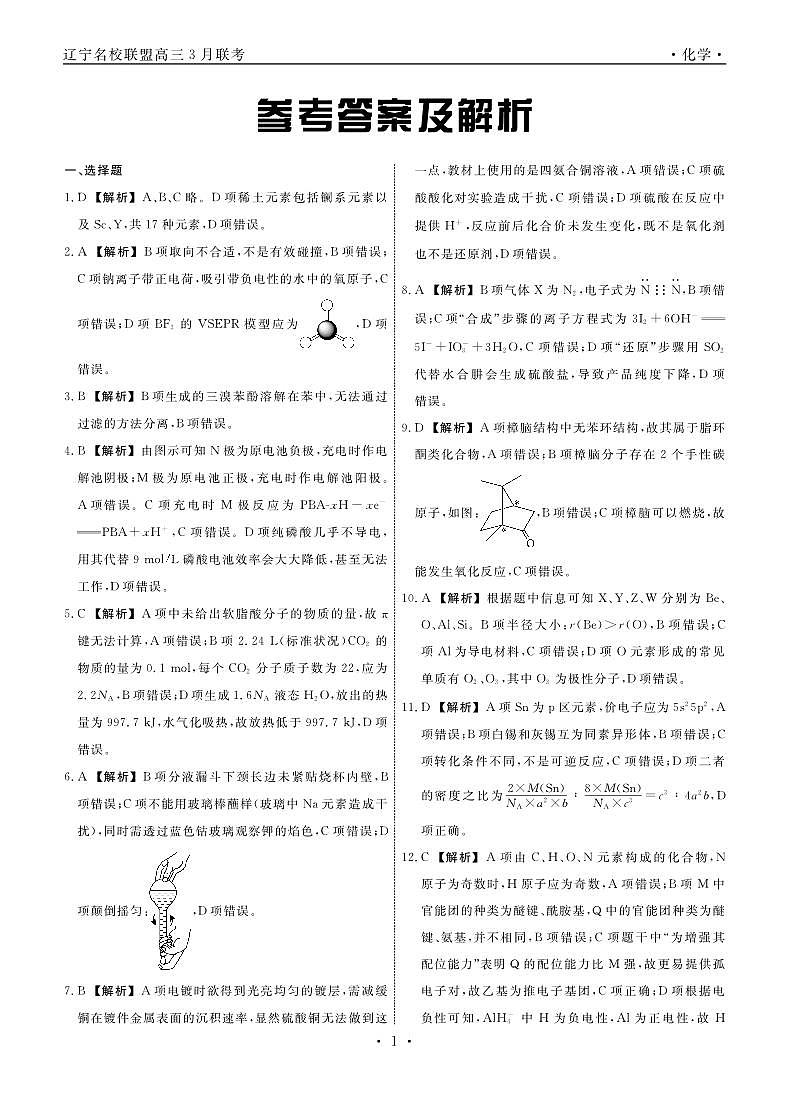 辽宁名校联盟高三3月联考
·化学·
参考答案及解析
一、选择题
1. D 【解析】A、B、C 略。D 项稀土元素包括镧系元素以
及 Sc、Y,共 17 种元素,D 项错误。
2. A 【解析】B 项取向不合适,不是有效碰撞,B 项错误;
C 项钠离子带正电荷,吸引带负电性的水中的氧原子,C
项错误;D 项 BF₃ 的 VSEPR 模型应为 ,D 项
错误。
3. B 【解析】B 项生成的三溴苯酚溶解在苯中,无法通过
过滤的方法分离,B 项错误。
4. B 【解析】由图示可知 N 极为原电池负极,充电时作电
解池阴极;M 极为原电池正极,充电时作电解池阳极。
A 项错误。C 项充电时 M 极反应为 PBA-xH－xe⁻
══PBA＋xH⁺,C 项错误。D 项纯磷酸几乎不导电,
用其代替 9 mol/L 磷酸电池效率会大大降低,甚至无法
工作,D 项错误。
5. C 【解析】A 项中未给出软脂酸分子的物质的量,故 π
键无法计算,A 项错误;B 项 2.24 L(标准状况)CO₂ 的
物质的量为 0.1 mol,每个 CO₂ 分子质子数为 22,应为
2.2Nₐ,B 项错误;D 项生成 1.6Nₐ 液态 H₂O,放出的热
量为 997.7 kJ,水气化吸热,故放热低于 997.7 kJ,D 项
错误。
6. A 【解析】B 项分液漏斗下颈长边未紧贴烧杯内壁,B
项错误;C 项不能用玻璃棒蘸样(玻璃中 Na 元素造成干
扰),同时需透过蓝色钴玻璃观察钾的焰色,C 项错误;D
项颠倒摇匀: ,D 项错误。
7. B 【解析】A 项电镀时欲得到光亮均匀的镀层,需减缓
铜在镀件金属表面的沉积速率,显然硫酸铜无法做到这
一点,教材上使用的是四氨合铜溶液,A 项错误;C 项硫
酸酸化对实验造成干扰,C 项错误;D 项硫酸在反应中
提供 H⁺,反应前后化合价未发生变化,既不是氧化剂
也不是还原剂,D 项错误。
8. A 【解析】B 项气体 X 为 N₂,电子式为 :N⋮⋮N:,B 项错
误;C 项“合成”步骤的离子方程式为 3I₂＋6OH⁻══
5I⁻＋IO₃⁻＋3H₂O,C 项错误;D 项“还原”步骤用 SO₂
代替水合肼会生成硫酸盐,导致产品纯度下降,D 项
错误。
9. D 【解析】A 项樟脑结构中无苯环结构,故其属于脂环
酮类化合物,A 项错误;B 项樟脑分子存在 2 个手性碳
原子,如图: * * O ,B 项错误;C 项樟脑可以燃烧,故
能发生氧化反应,C 项错误。
10. A 【解析】根据题中信息可知 X、Y、Z、W 分别为 Be、
O、Al、Si。B 项半径大小:r(Be)＞r(O),B 项错误;C
项 Al 为导电材料,C 项错误;D 项 O 元素形成的常见
单质有 O₂、O₃,其中 O₃ 为极性分子,D 项错误。
11. D 【解析】A 项 Sn 为 p 区元素,价电子应为 5s²5p²,A
项错误;B 项白锡和灰锡互为同素异形体,B 项错误;C
项转化条件不同,不是可逆反应,C 项错误;D 项二者
的密度之比为 2×M(Sn)/(Nₐ×a²×b) : 8×M(Sn)/(Nₐ×c³) ＝c³ : 4a²b,D
项正确。
12. C 【解析】A 项由 C、H、O、N 元素构成的化合物,N
原子为奇数时,H 原子应为奇数,A 项错误;B 项 M 中
官能团的种类为醚键、酰胺基,Q 中的官能团种类为醚
键、氨基,并不相同,B 项错误;C 项题干中“为增强其
配位能力”表明 Q 的配位能力比 M 强,故更易提供孤
电子对,故乙基为推电子基团,C 项正确;D 项根据电
负性可知,AlH₄⁻ 中 H 为负电性,Al 为正电性,故 H
· 1 ·